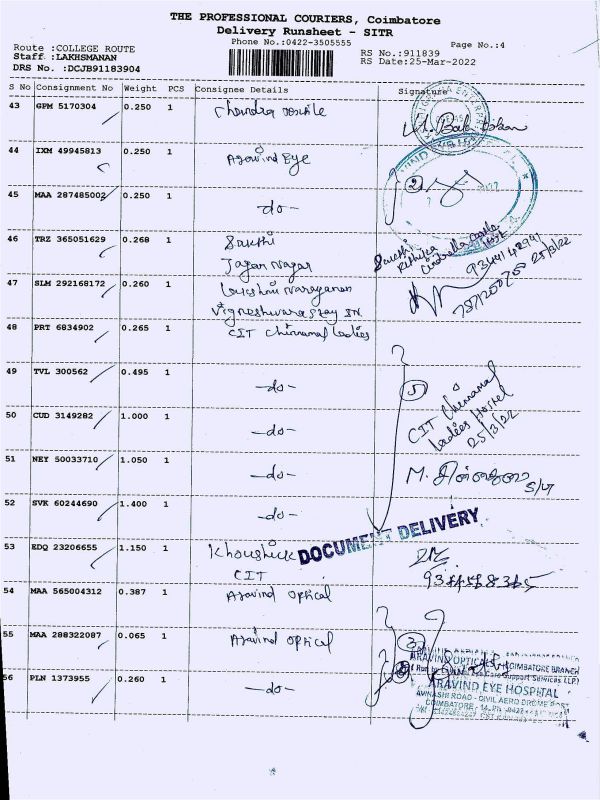 THE PROFESSIONAL COURIERS, Coimbatore
Delivery Runsheet - SITR
Phone No.:0422-3505555
Page No.:4
Route :COLLEGE ROUTE
Staff :LAKHSMANAN
DRS No. :DCJB91183904
RS No.:911839
RS Date:25-Mar-2022
S No Consignment No Weight PCS Consignee Details Signature
43 GPM 5170304 0.250 1 Chandra textile
44 IXM 49945813 0.250 1 Aravind Eye
45 MAA 287485002 0.250 1 -do-
2
46 TRZ 365051629 0.268 1 Sakthi
Jagan Nagar
Sakthi
Cindrella Castle
9344142991
25/3/22
47 SLM 292168172 0.260 1 Lakshmi Narayanan
Vigneshwara Stay IN.
48 PRT 6834902 0.265 1 CIT Chinnamal Ladies
49 TVL 300562 0.495 1 -do-
5
CIT Chinnamal
Ladies Hostel
25/3/22
50 CUD 3149282 1.000 1 -do-
51 NEY 50033710 1.050 1 -do-
M.
52 SVK 60244690 1.400 1 -do-
DOCUMENT DELIVERY
53 EDQ 23206655 1.150 1 Khoushick
CIT
54 MAA 565004312 0.387 1 Aravind optical
55 MAA 288322087 0.065 1 Aravind optical
3
ARAVIND OPTICALS (COIMBATORE BRANCH)
Eye Care Support Services LLP)
56 PLN 1373955 0.260 1 -do-
ARAVIND EYE HOSPITAL
AVINASHI ROAD - CIVIL AERO DROME POST
COIMBATORE - 14.